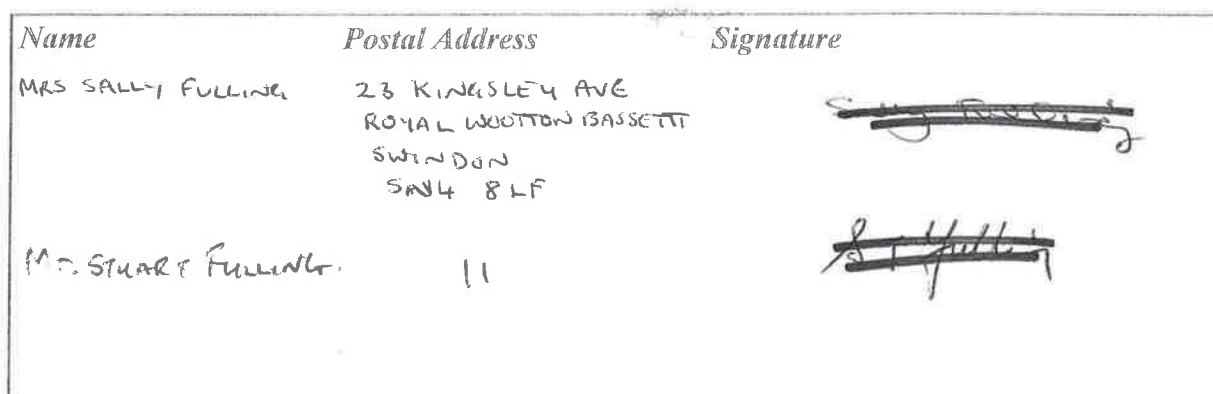 Name Postal Address Signature
MRS SALLY FULLING 23 KINGSLEY AVE
ROYAL WOOTTON BASSETT
SWINDON
SN4 8LF
Mr. STUART FULLING. 11